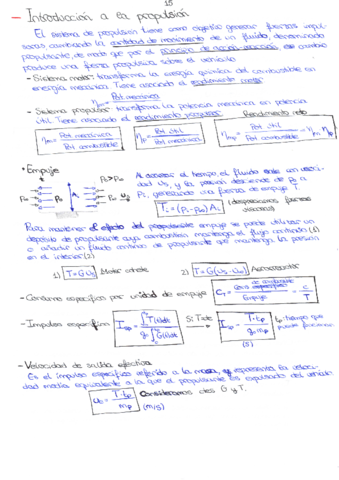 15
— Introducción a la propulsión
El sistema de propulsión tiene como objetivo generar fuerzas impul-
soras cambiando la cantidad de movimiento de un fluido, denominado
propulsante, de modo que por el principio de acción-reacción, ese cambio
produce una fuerza propulsiva sobre el vehículo
- Sistema motor: transforma la energía química del combustible en
energía mecánica. Tiene asociado el rendimiento motor:
Pot mecánica
- Sistema propulsor: transforma la potencia mecánica en potencia
útil. Tiene asociado el rendimiento propulsor: Rendimiento
ηm = Pot mecánica / Pot combustible   ηp = Pot útil / Pot mecánica   ηmp = Pot útil / Pot combustible = ηm ηp
• Empuje
P0 > P∞
Al avanzar el tiempo, el fluido sale con veloci-
dad us, y la presión desciende de P0 a
P1, generando una fuerza de empuje T
Para mantener el efecto del empuje se puede utilizar un
depósito de propulsante cuya combustión mantenga el flujo continuo (1)
o añadir un fluido continuo de propulsante que mantenga la presión
en el interior (2)
1) T = G us Motor cohete   2) T = G(us - u∞) Aerorreactor
- Consumo específico por unidad de empuje   Empuje = c / T
- Impulso específico   Si T cte   tp: tiempo que
(s)
- Velocidad de salida efectiva
Es el impulso específico referido a la masa, y representa la veloci-
dad media equivalente a la que el propulsante es expulsado del vehículo
= T · tp / mp (m/s)   Consideramos ctes G y T.